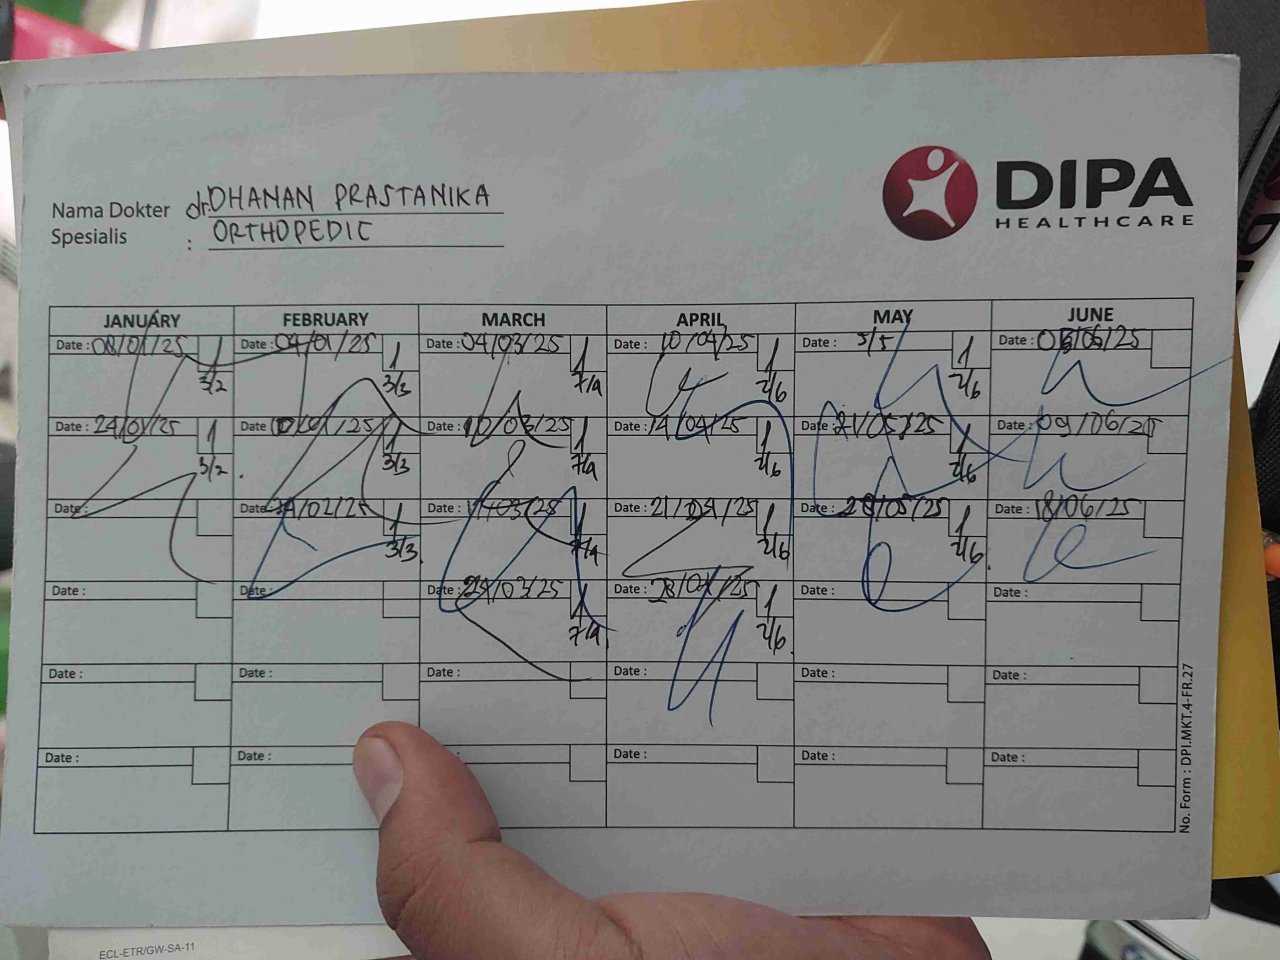 DIPA
HEALTHCARE
Nama Dokter dr. DHANAN PRASTANIKA
Spesialis : ORTHOPEDIC
JANUARY FEBRUARY MARCH APRIL MAY JUNE
Date : 08/01/25 1 Date : 04/01/25 1 Date : 04/03/25 1 Date : 10/04/25 1 Date : 5/5 1 Date : 05/06/25
3/2 3/3 7/4 2/6 2/6
Date : 24/01/25 1 Date : 1 Date : 10/03/25 1 Date : 14/04/25 1 Date : 21/05/25 1 Date : 09/06/25
3/2 3/3 7/4 2/6 2/6
Date : Date : /02/25 1 Date : /03/25 1 Date : 21/04/25 1 Date : 28/05/25 1 Date : 18/06/25
3/3 7/4 2/6 2/6
Date : Date : Date : 24/03/25 1 Date : 28/04/25 1 Date : Date :
7/4 2/6
Date : Date : Date : Date : Date : Date :
Date : Date : Date : Date : Date : Date :
No. Form : DPI.MKT.4-FR.27
ECL-ETR/GW-SA-11